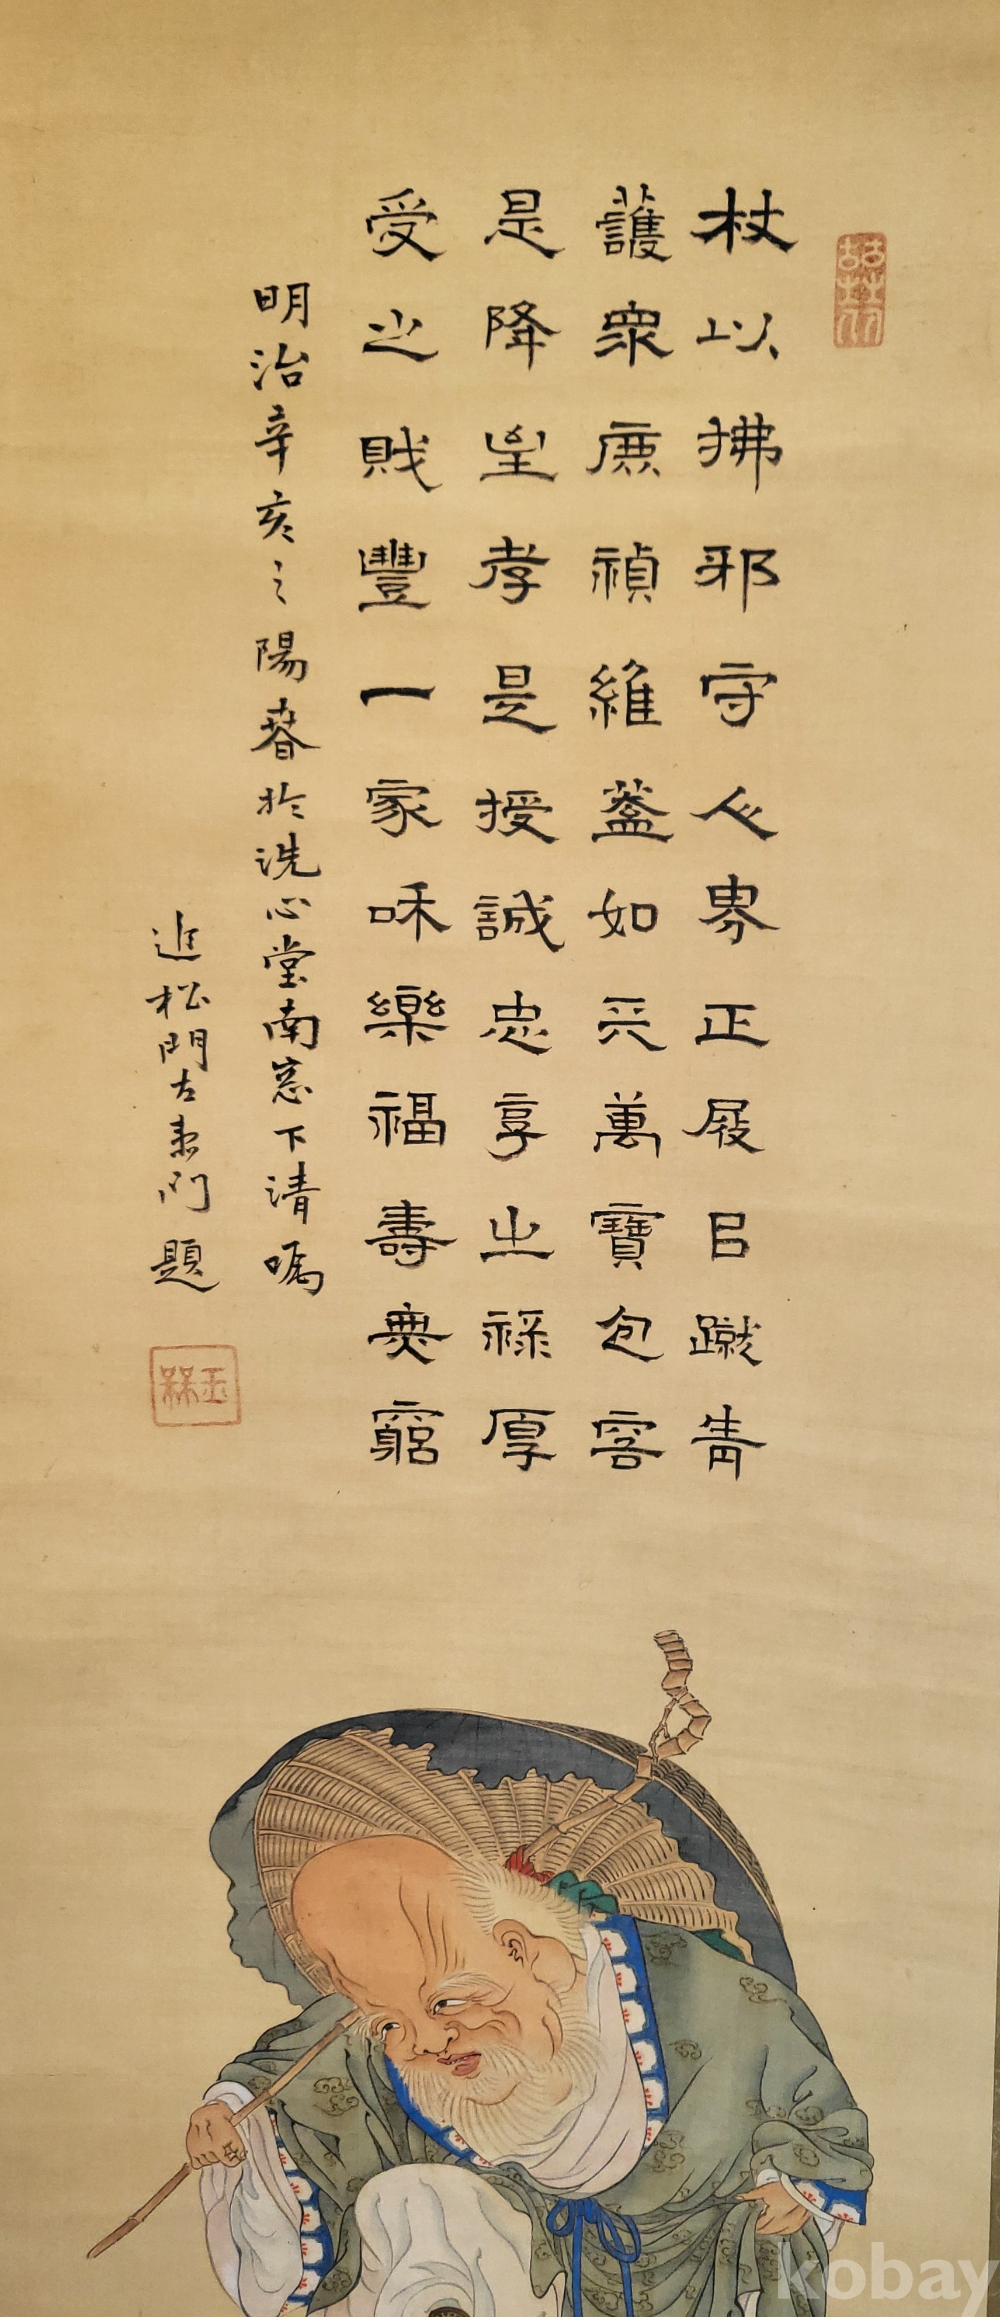 杖以拂邪守人界正屐㠯蹴眚
護衆庶禎維蓋如天萬寶包容
是降至孝是授誠忠享之祿厚
受之財豐一家咊樂福壽無窮
明治辛亥之陽春於洗心堂南窓下清嘱
進松門左衛門題
kobay